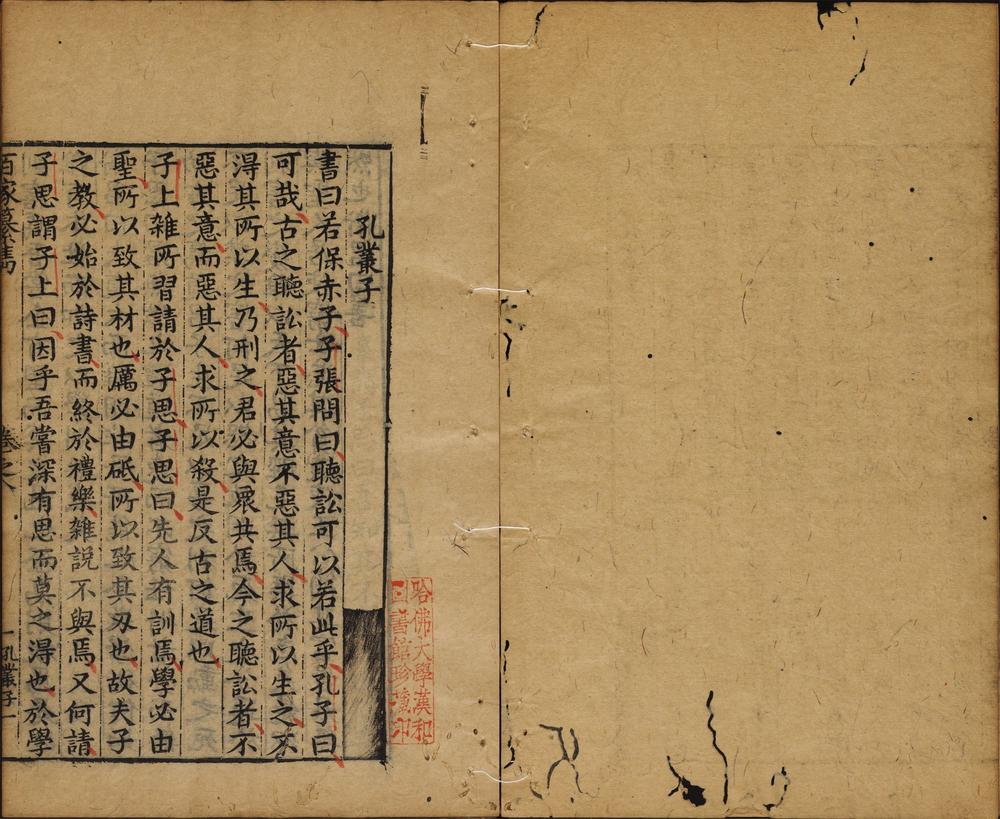 孔叢子
書曰若保赤子子張問曰聽訟可以若此乎孔子曰
可哉古之聽訟者惡其意不惡其人求所以生之不
得其所以生乃刑之君必與眾共焉今之聽訟者不
惡其意而惡其人求所以殺是反古之道也
子上雜所習請於子思子思曰先人有訓焉學必由
聖所以致其材也厲必由砥所以致其刃也故夫子
之教必始於詩書而終於禮樂雜說不與焉又何請
子思謂子上曰因乎吾嘗深有思而莫之得也於學
百家纂
卷之
孔叢子一
哈佛大學漢和
圖書館珍藏印